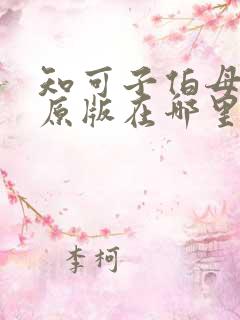 知可子伯母
原版在哪里
李柯